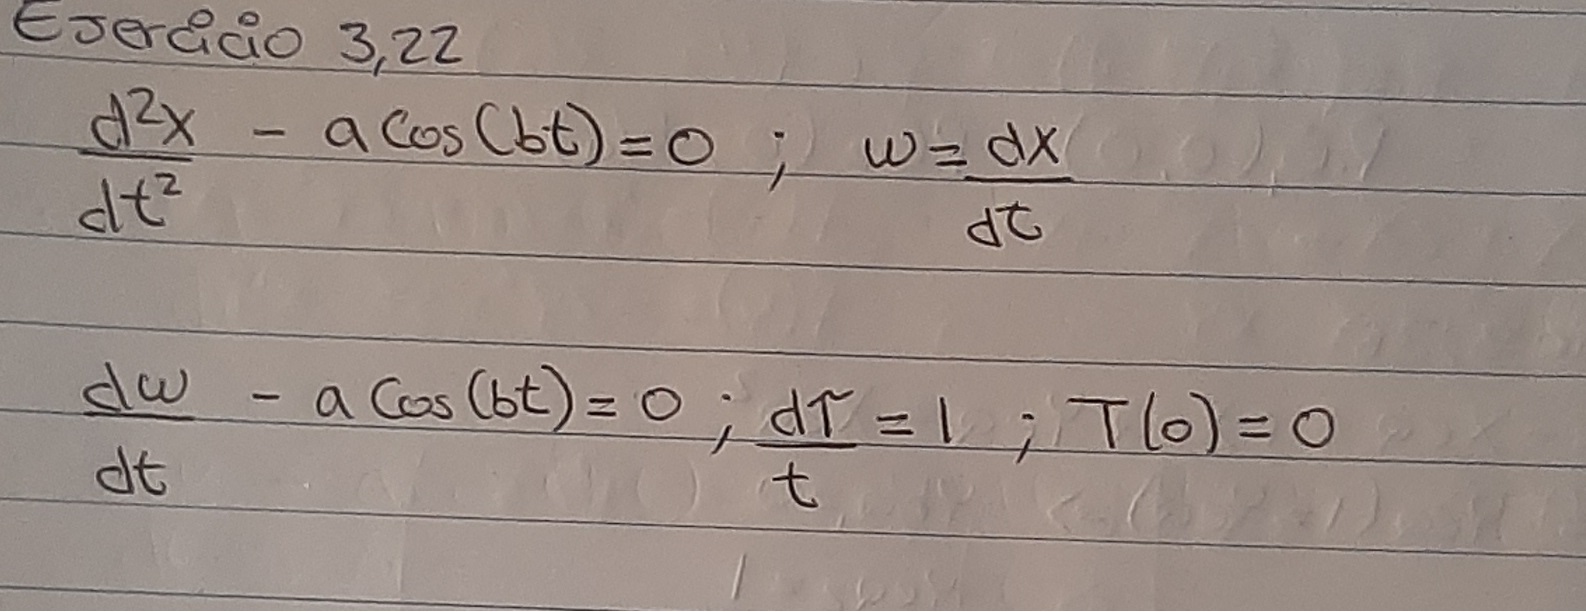 Ejercicio 3,22
d²x/dt² - a cos(bt) = 0 ; w = dx/dt
dw/dt - a cos(bt) = 0 ; dT/t = 1 ; T(0) = 0